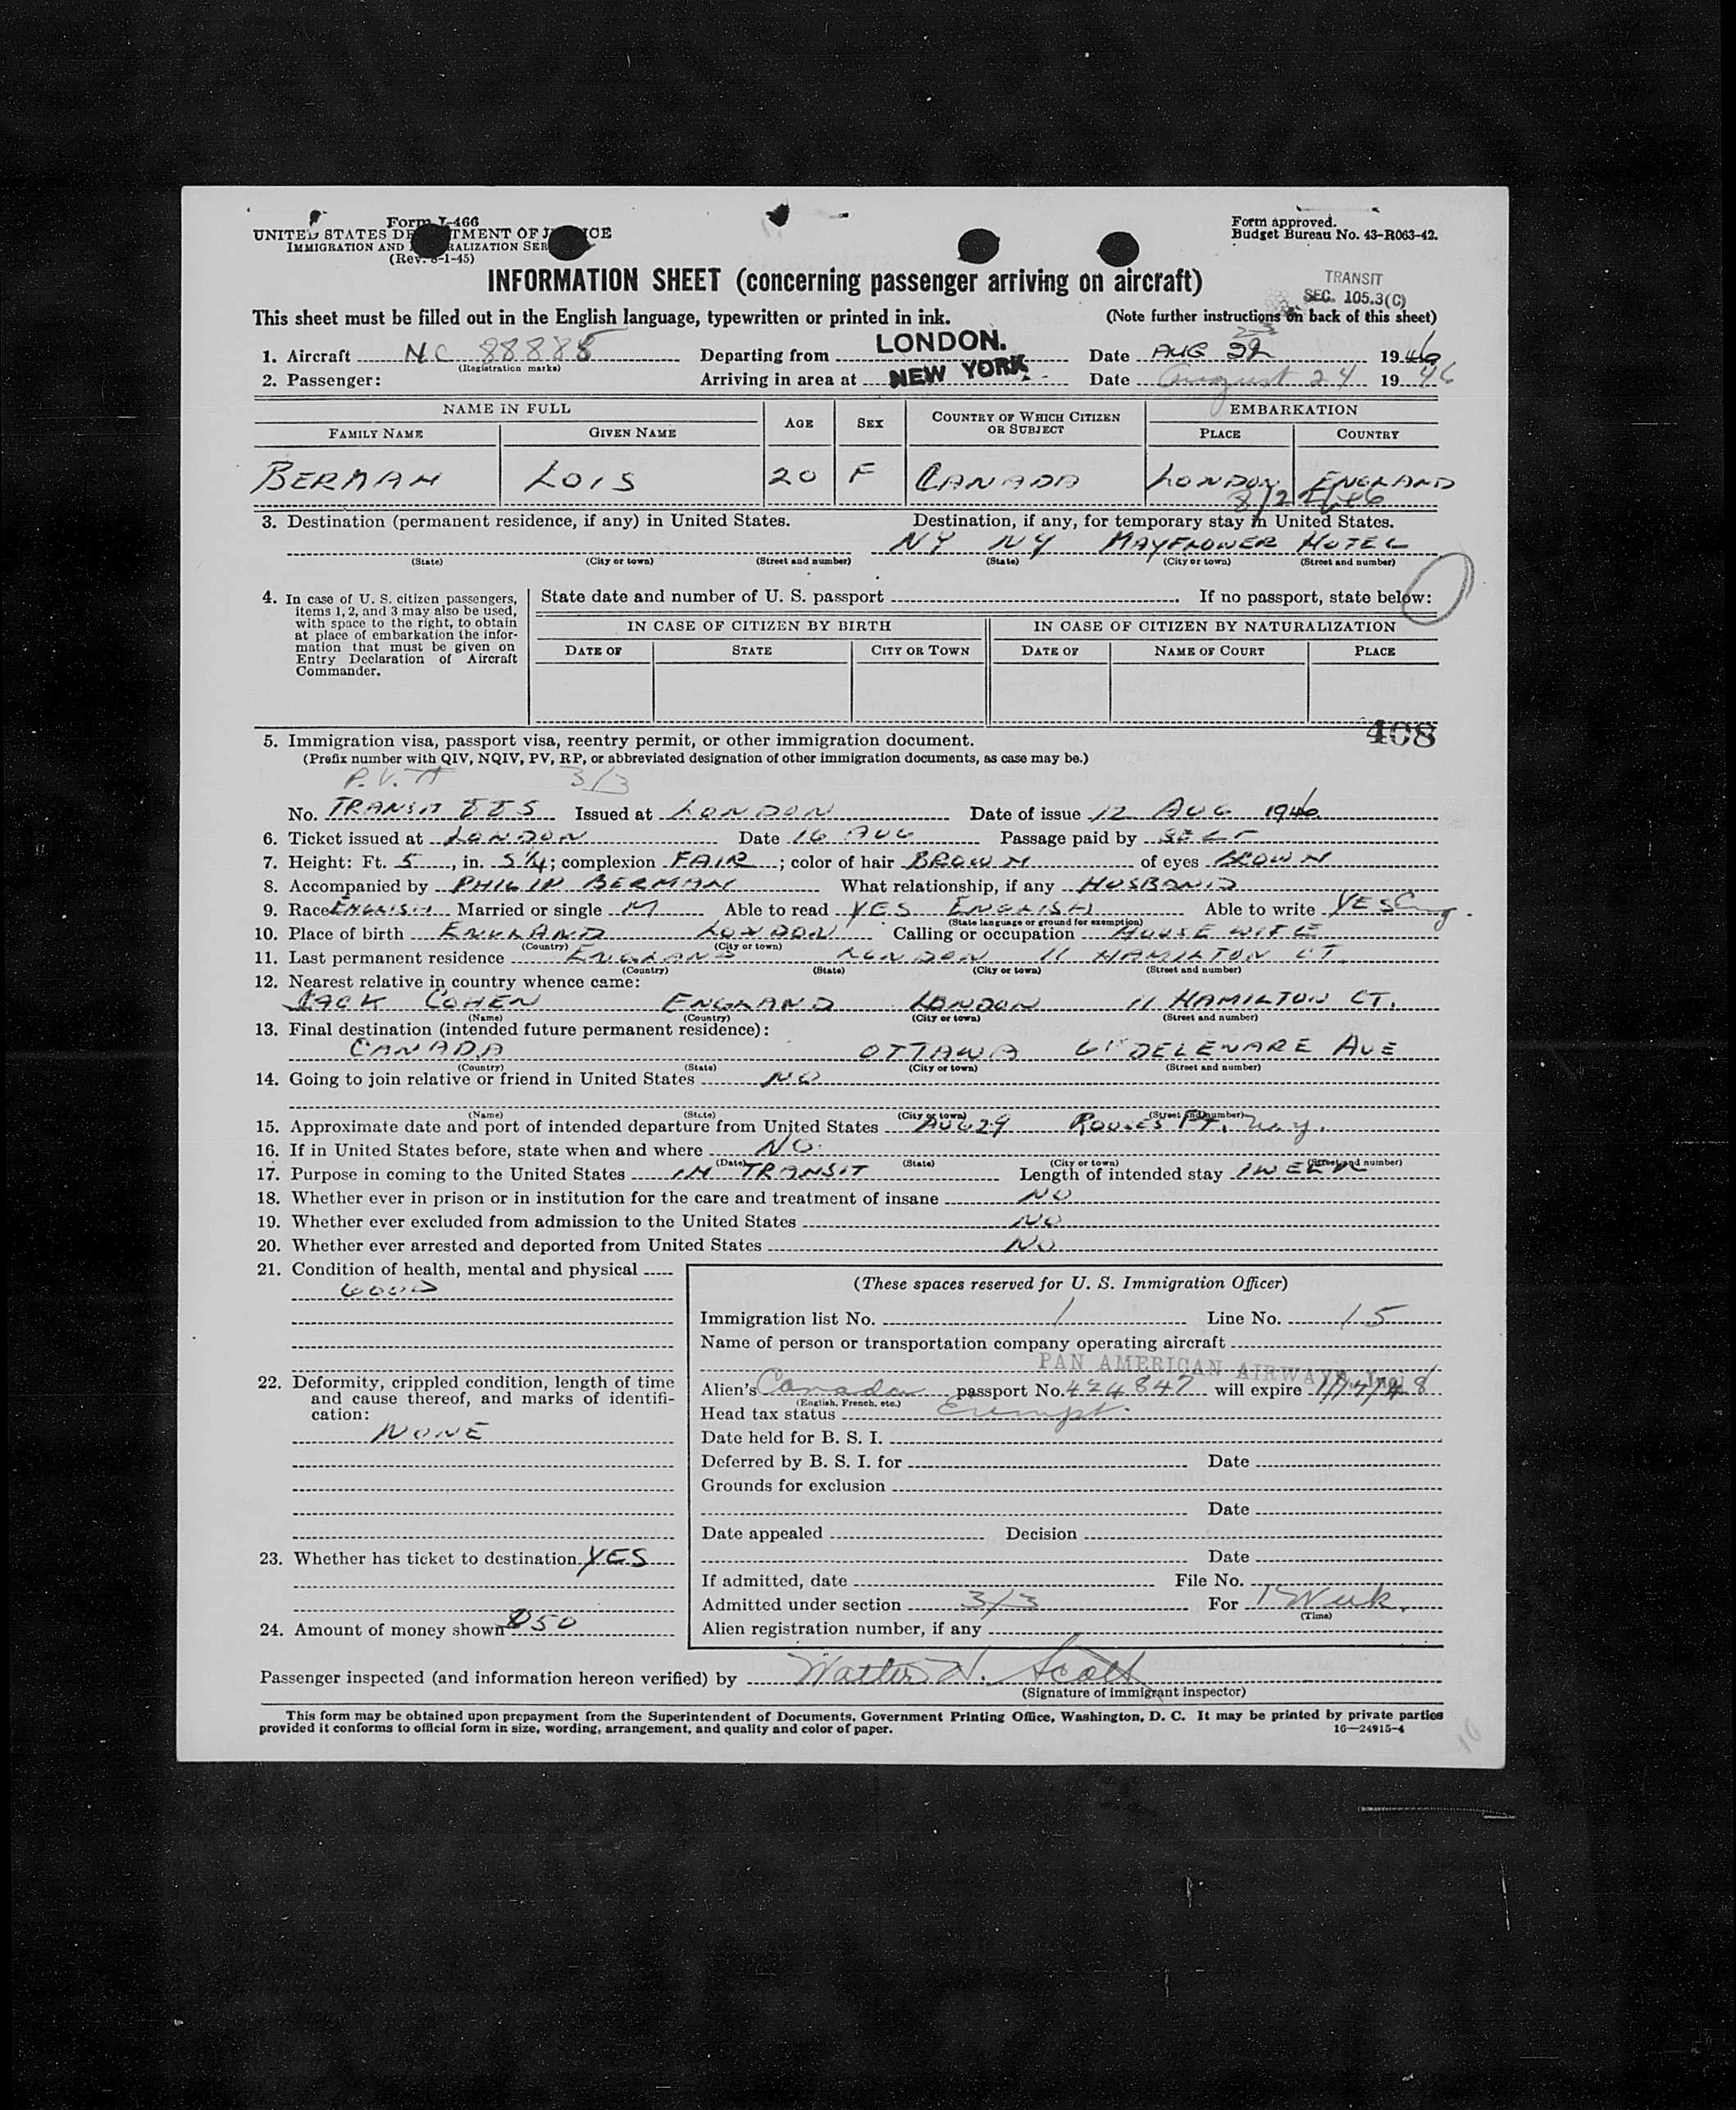 Form I-466
UNITED STATES DEPARTMENT OF JUSTICE
IMMIGRATION AND NATURALIZATION SERVICE
(Rev. 8-1-45)
Form approved.
Budget Bureau No. 43-R063-42.
INFORMATION SHEET (concerning passenger arriving on aircraft)
TRANSIT
SEC. 105.3(C)
This sheet must be filled out in the English language, typewritten or printed in ink.
(Note further instructions on back of this sheet)
1. Aircraft NC 88888 Departing from LONDON. Date AUG 1946
(Registration marks)
2. Passenger: Arriving in area at NEW YORK. Date August 24 1946
NAME IN FULL
FAMILY NAME GIVEN NAME AGE SEX COUNTRY OF WHICH CITIZEN OR SUBJECT EMBARKATION
PLACE COUNTRY
BERMAN LOIS 20 F CANADA LONDON ENGLAND
3. Destination (permanent residence, if any) in United States. Destination, if any, for temporary stay in United States.
NY NY MAYFLOWER HOTEL
(State) (City or town) (Street and number) (State) (City or town) (Street and number)
4. In case of U. S. citizen passengers, items 1, 2, and 3 may also be used, with space to the right, to obtain at place of embarkation the information that must be given on Entry Declaration of Aircraft Commander.
State date and number of U. S. passport If no passport, state below:
IN CASE OF CITIZEN BY BIRTH IN CASE OF CITIZEN BY NATURALIZATION
DATE OF STATE CITY OR TOWN DATE OF NAME OF COURT PLACE
408
5. Immigration visa, passport visa, reentry permit, or other immigration document.
(Prefix number with QIV, NQIV, PV, RP, or abbreviated designation of other immigration documents, as case may be.)
P.V. 3/3
No. TRANSIT Issued at LONDON Date of issue 12 AUG 1946
6. Ticket issued at LONDON Date 16 AUG Passage paid by SELF
7. Height: Ft. 5, in. 5 1/4; complexion FAIR; color of hair BROWN of eyes BROWN
8. Accompanied by PHILIP BERMAN What relationship, if any HUSBAND
9. Race ENGLISH Married or single M Able to read YES ENGLISH Able to write YES
(State language or ground for exemption)
10. Place of birth ENGLAND LONDON Calling or occupation HOUSEWIFE
(Country) (City or town)
11. Last permanent residence ENGLAND LONDON 11 HAMILTON CT.
(Country) (State) (City or town) (Street and number)
12. Nearest relative in country whence came:
JACK COHEN ENGLAND LONDON 11 HAMILTON CT.
(Name) (Country) (City or town) (Street and number)
13. Final destination (intended future permanent residence):
CANADA OTTAWA DELEWARE AVE
(Country) (State) (City or town) (Street and number)
14. Going to join relative or friend in United States NO
(Name) (State) (City or town) (Street and number)
15. Approximate date and port of intended departure from United States AUG 29 ROUSES PT. N.Y.
16. If in United States before, state when and where NO.
(Date) (State) (City or town) (Street and number)
17. Purpose in coming to the United States IN TRANSIT Length of intended stay 1 WEEK
18. Whether ever in prison or in institution for the care and treatment of insane NO
19. Whether ever excluded from admission to the United States NO
20. Whether ever arrested and deported from United States NO
21. Condition of health, mental and physical
GOOD
22. Deformity, crippled condition, length of time and cause thereof, and marks of identification:
NONE
23. Whether has ticket to destination YES
24. Amount of money shown $50
(These spaces reserved for U. S. Immigration Officer)
Immigration list No. 1 Line No. 15
Name of person or transportation company operating aircraft
PAN AMERICAN AIRWAYS, Inc.
Alien's Canadan passport No. 424847 will expire
(English, French, etc.)
Head tax status Exempt.
Date held for B. S. I.
Deferred by B. S. I. for Date
Grounds for exclusion
Date
Date appealed Decision
Date
If admitted, date File No.
Admitted under section 3/3 For 1 Week.
(Time)
Alien registration number, if any
Passenger inspected (and information hereon verified) by Walter H. Scott
(Signature of immigrant inspector)
This form may be obtained upon prepayment from the Superintendent of Documents, Government Printing Office, Washington, D. C. It may be printed by private parties
provided it conforms to official form in size, wording, arrangement, and quality and color of paper.
16—24915-4